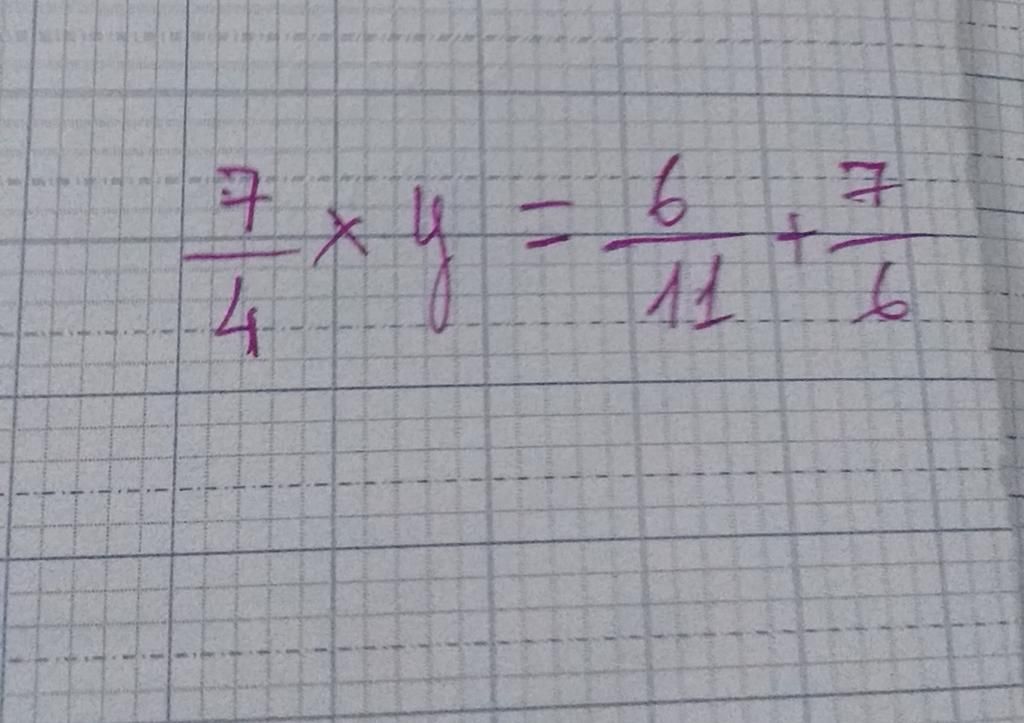 7/4 × y = 6/11 + 7/6